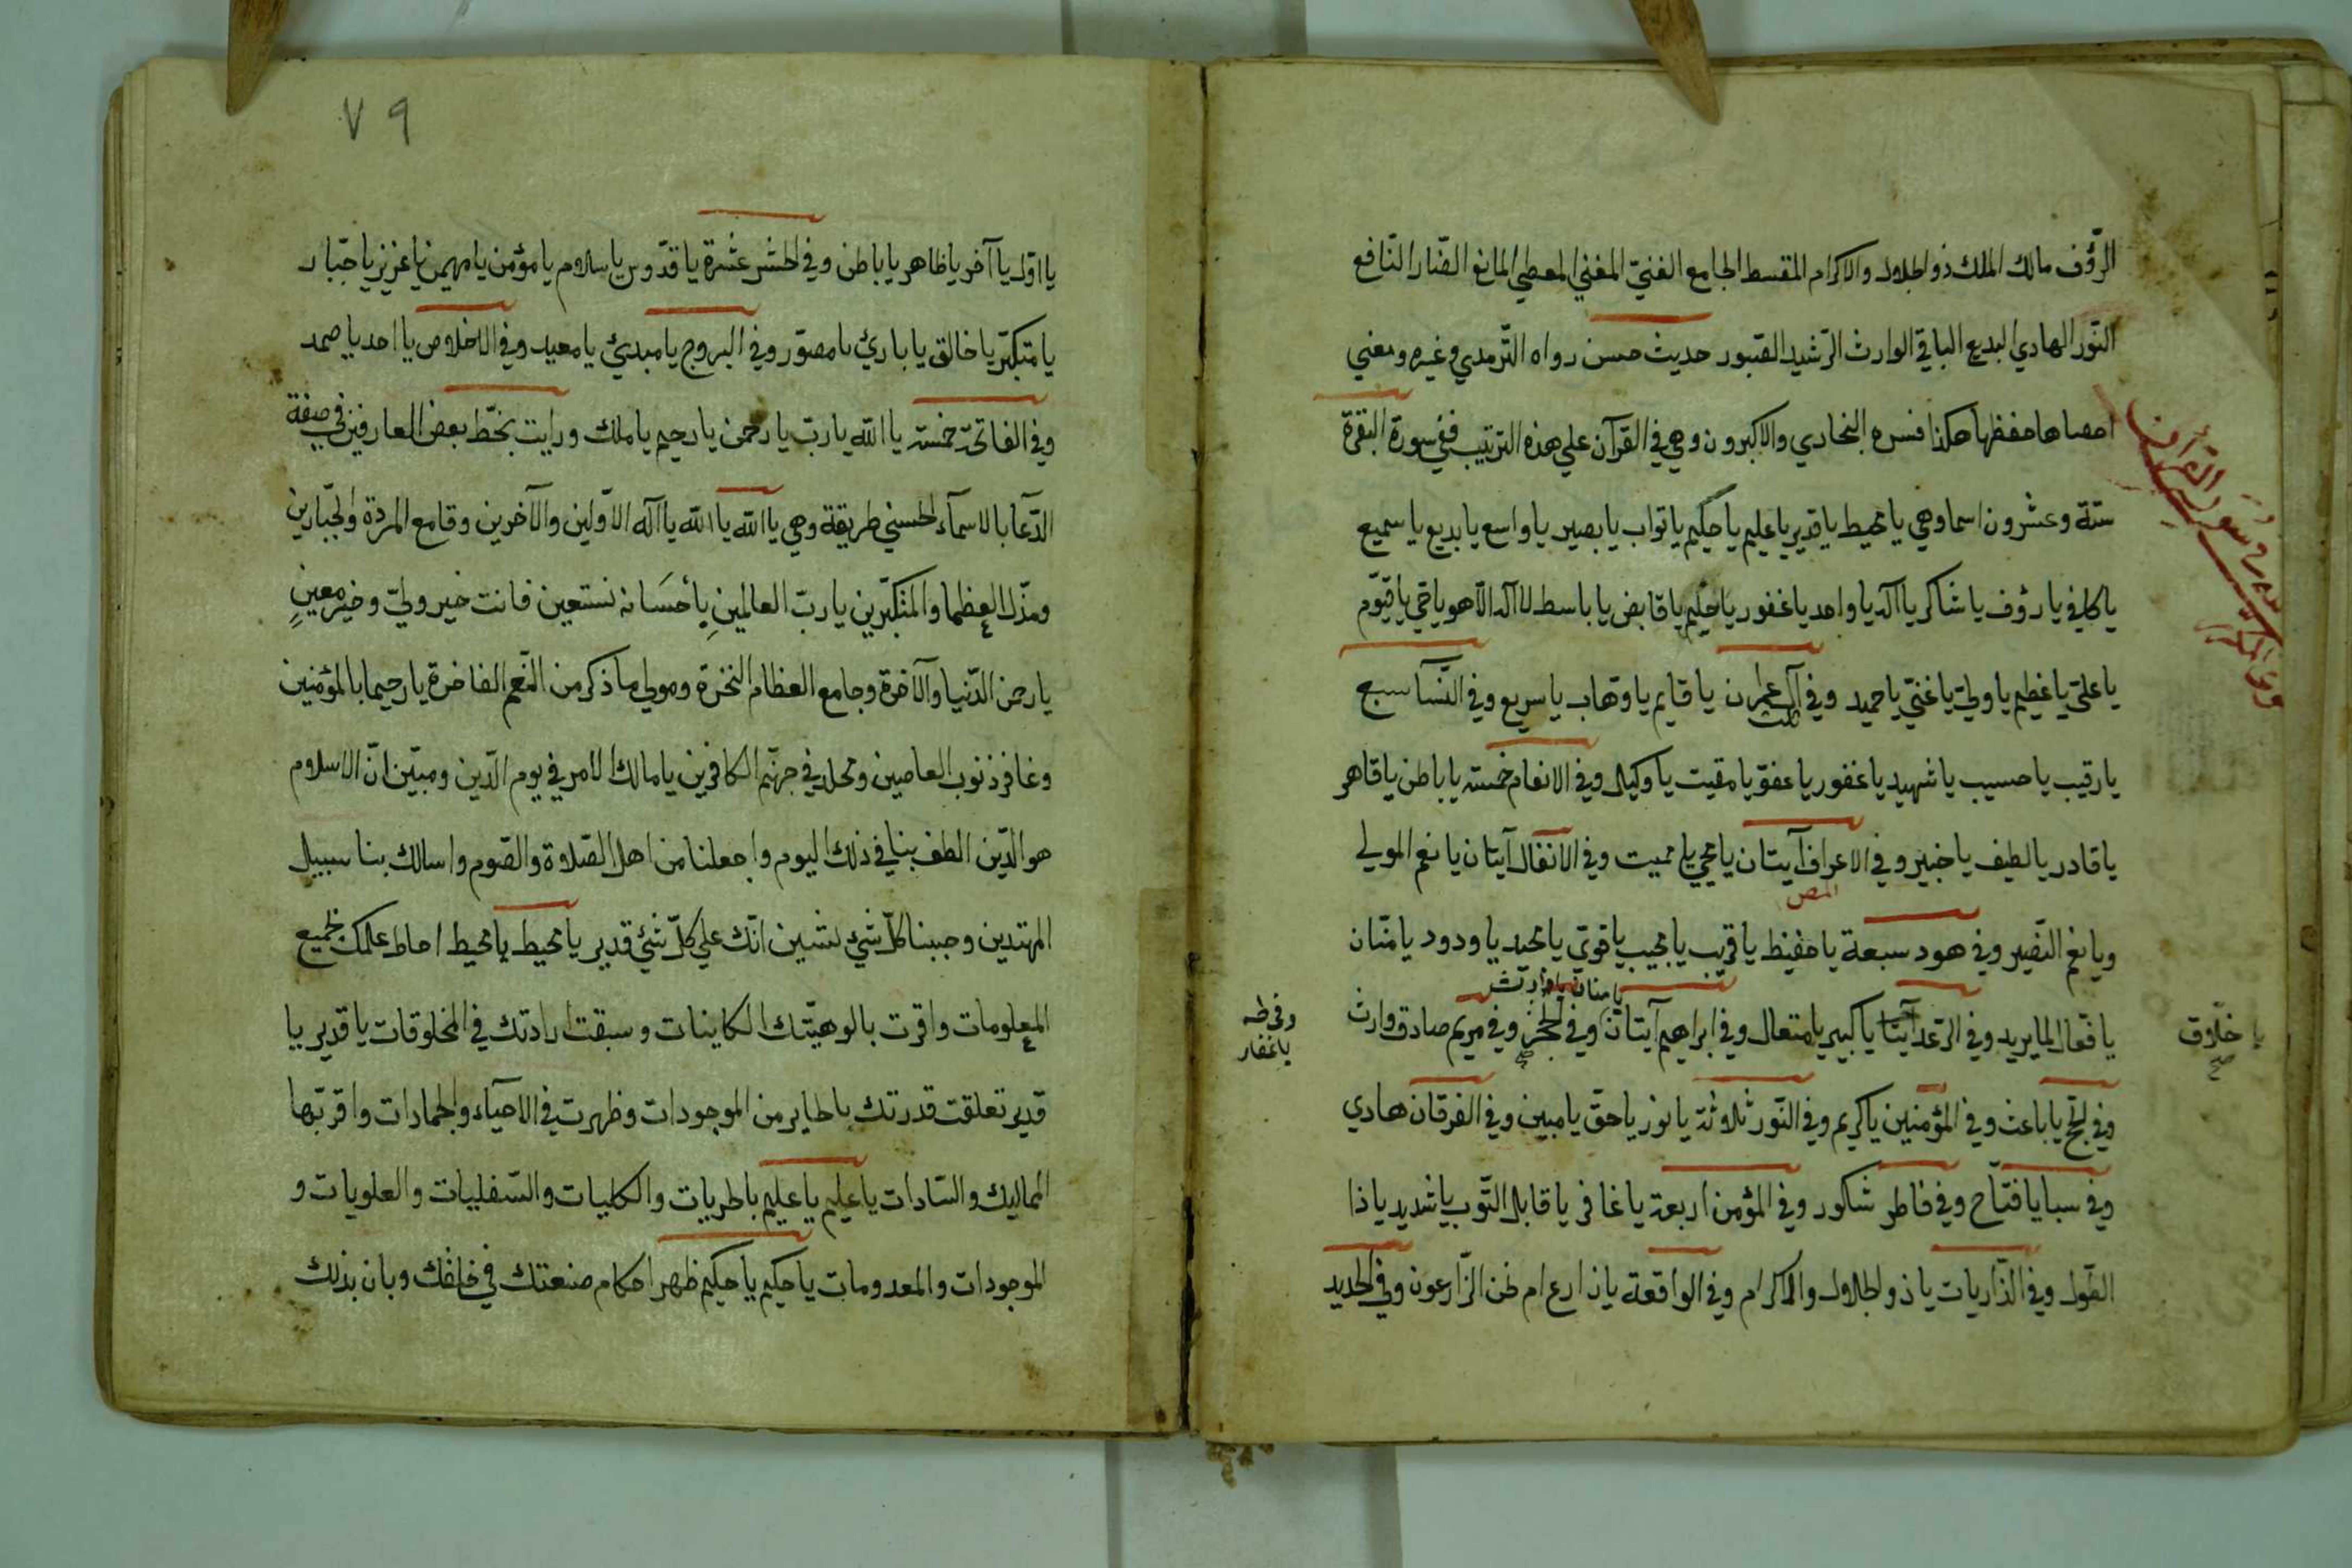 الرّؤف مالك الملك ذو الجلال والاكرام المقسط الجامع الغنيّ المغني المعطي المانع الضّار النّافع
النّور الهادي البديع الباقي الوارث الرّشيد الصّبور حديث حسن رواه التّرمدي وغيره ومعني
احصاها حفظها هكذا فسره البخاري والاكبرون وهي في القرآن علي هذه الترتيب ففي سورة البقرة
ستة وعشرون اسما وهي يا محيط يا قدير يا عليم يا حكيم يا تواب يا بصير يا واسع يا بديع يا سميع
يا كافي يا رؤف يا شاكر يا اله يا واحد يا غفور يا حليم يا قابض يا باسط لا اله الّا هو يا حي يا قيّوم
يا عليّ يا عظيم يا وليّ يا غنيّ يا حميد وفي آل عمران يا قايم يا وهّاب يا سريع وفي النّسا سبع
يا رقيب يا حسيب يا شهيد يا غفور يا عفوّ يا مقيت يا وكيل وفي الانعام خمسة يا باطن يا قاهر
يا قادر يا لطيف يا خبير وفي الاعراف آيتان يا محي يا مميت وفي الانفال آيتان يا نعم المولي
المص
ويا نعم النّصير وفي هود سبعة يا حفيظ يا قريب يا مجيب يا قويّ يا مجيد يا ودود يا منّان
يا منان يا وارث
يا فعّال لما يريد وفي الرّعد آيتا يا كبير يا متعال وفي ابراهيم آيتان وفي الحجر وفي مريم صادق وارث
يا خلّاق
صح
وفي طه
يا غفار
وفي الحج يا باعث وفي المؤمنين يا كريم وفي النّور ثلاوثة يا نور يا حقّ يا مبين وفي الفرقان هادي
وفي سبا يا فتّاح وفي فاطر شكور وفي المؤمن اربعة يا غافر يا قابل التّوب يا شديد يا ذا
الطّول وفي الذّاريات يا ذو الجلال والاكرام وفي الواقعة يا ذارع ام نحن الزّارعون وفي الحديد
٧٩
يا اوّل يا آخر يا ظاهر يا باطن وفي الحشر عشرة يا قدّوس يا سلام يا مؤمن يا مهيمن يا عزيز يا جبّار
يا متكبّر يا خالق يا بارئ يا مصوّر وفي البروج يا مبدئ يا معيد وفي الاخلاص يا احد يا صمد
وفي الفاتحة خمسة يا اللّه يا ربّ يا رحمن يا رحيم يا ملك ورايت بخطّ بعض العارفين في صفة
الدّعا بالاسمآء الحسني طريقة وهي يا اللّه يا اللّه يا اله الاوّلين والآخرين وقامع المردة والجبّارين
ومذلّ العظما والمتكبّرين يا ربّ العالمين يأحسانه نستعين فانت خير وليّ وخير معين
يا رحمن الدّنيا والآخرة وجامع العظام النخرة ومولي ما ذكر من النّعم الفاخرة يا رحيما بالمؤمنين
وغافر ذنوب العاصين ومخلد في جهنّم الكافرين يا مالك الامر في يوم الدّين ومبيّن انّ الاسلام
هو الدّين الطف بنا في ذلك اليوم واجعلنا من اهل الصّلاوة والصّوم واسالك بنا سبيل
المهتدين وجنبنا كلّ شيء يشين انّك علي كلّ شئ قدير يا محيط يا محيط احاط علمك بجميع
المعلومات واقرت بالوهيّتك الكاينات وسبقت ارادتك في المخلوقات يا قدير يا
قدير تعلقت قدرتك بالحاير من الموجودات وظهرت في الاحيآء والجمادات واقر بّها
المماليك والسّادات يا عليم يا عليم بالجزيات والكليات والسّفليات والعلويات و
الموجودات والمعدومات يا حكيم يا حكيم ظهر احكام صنعتك في خلقك وبان بذلك